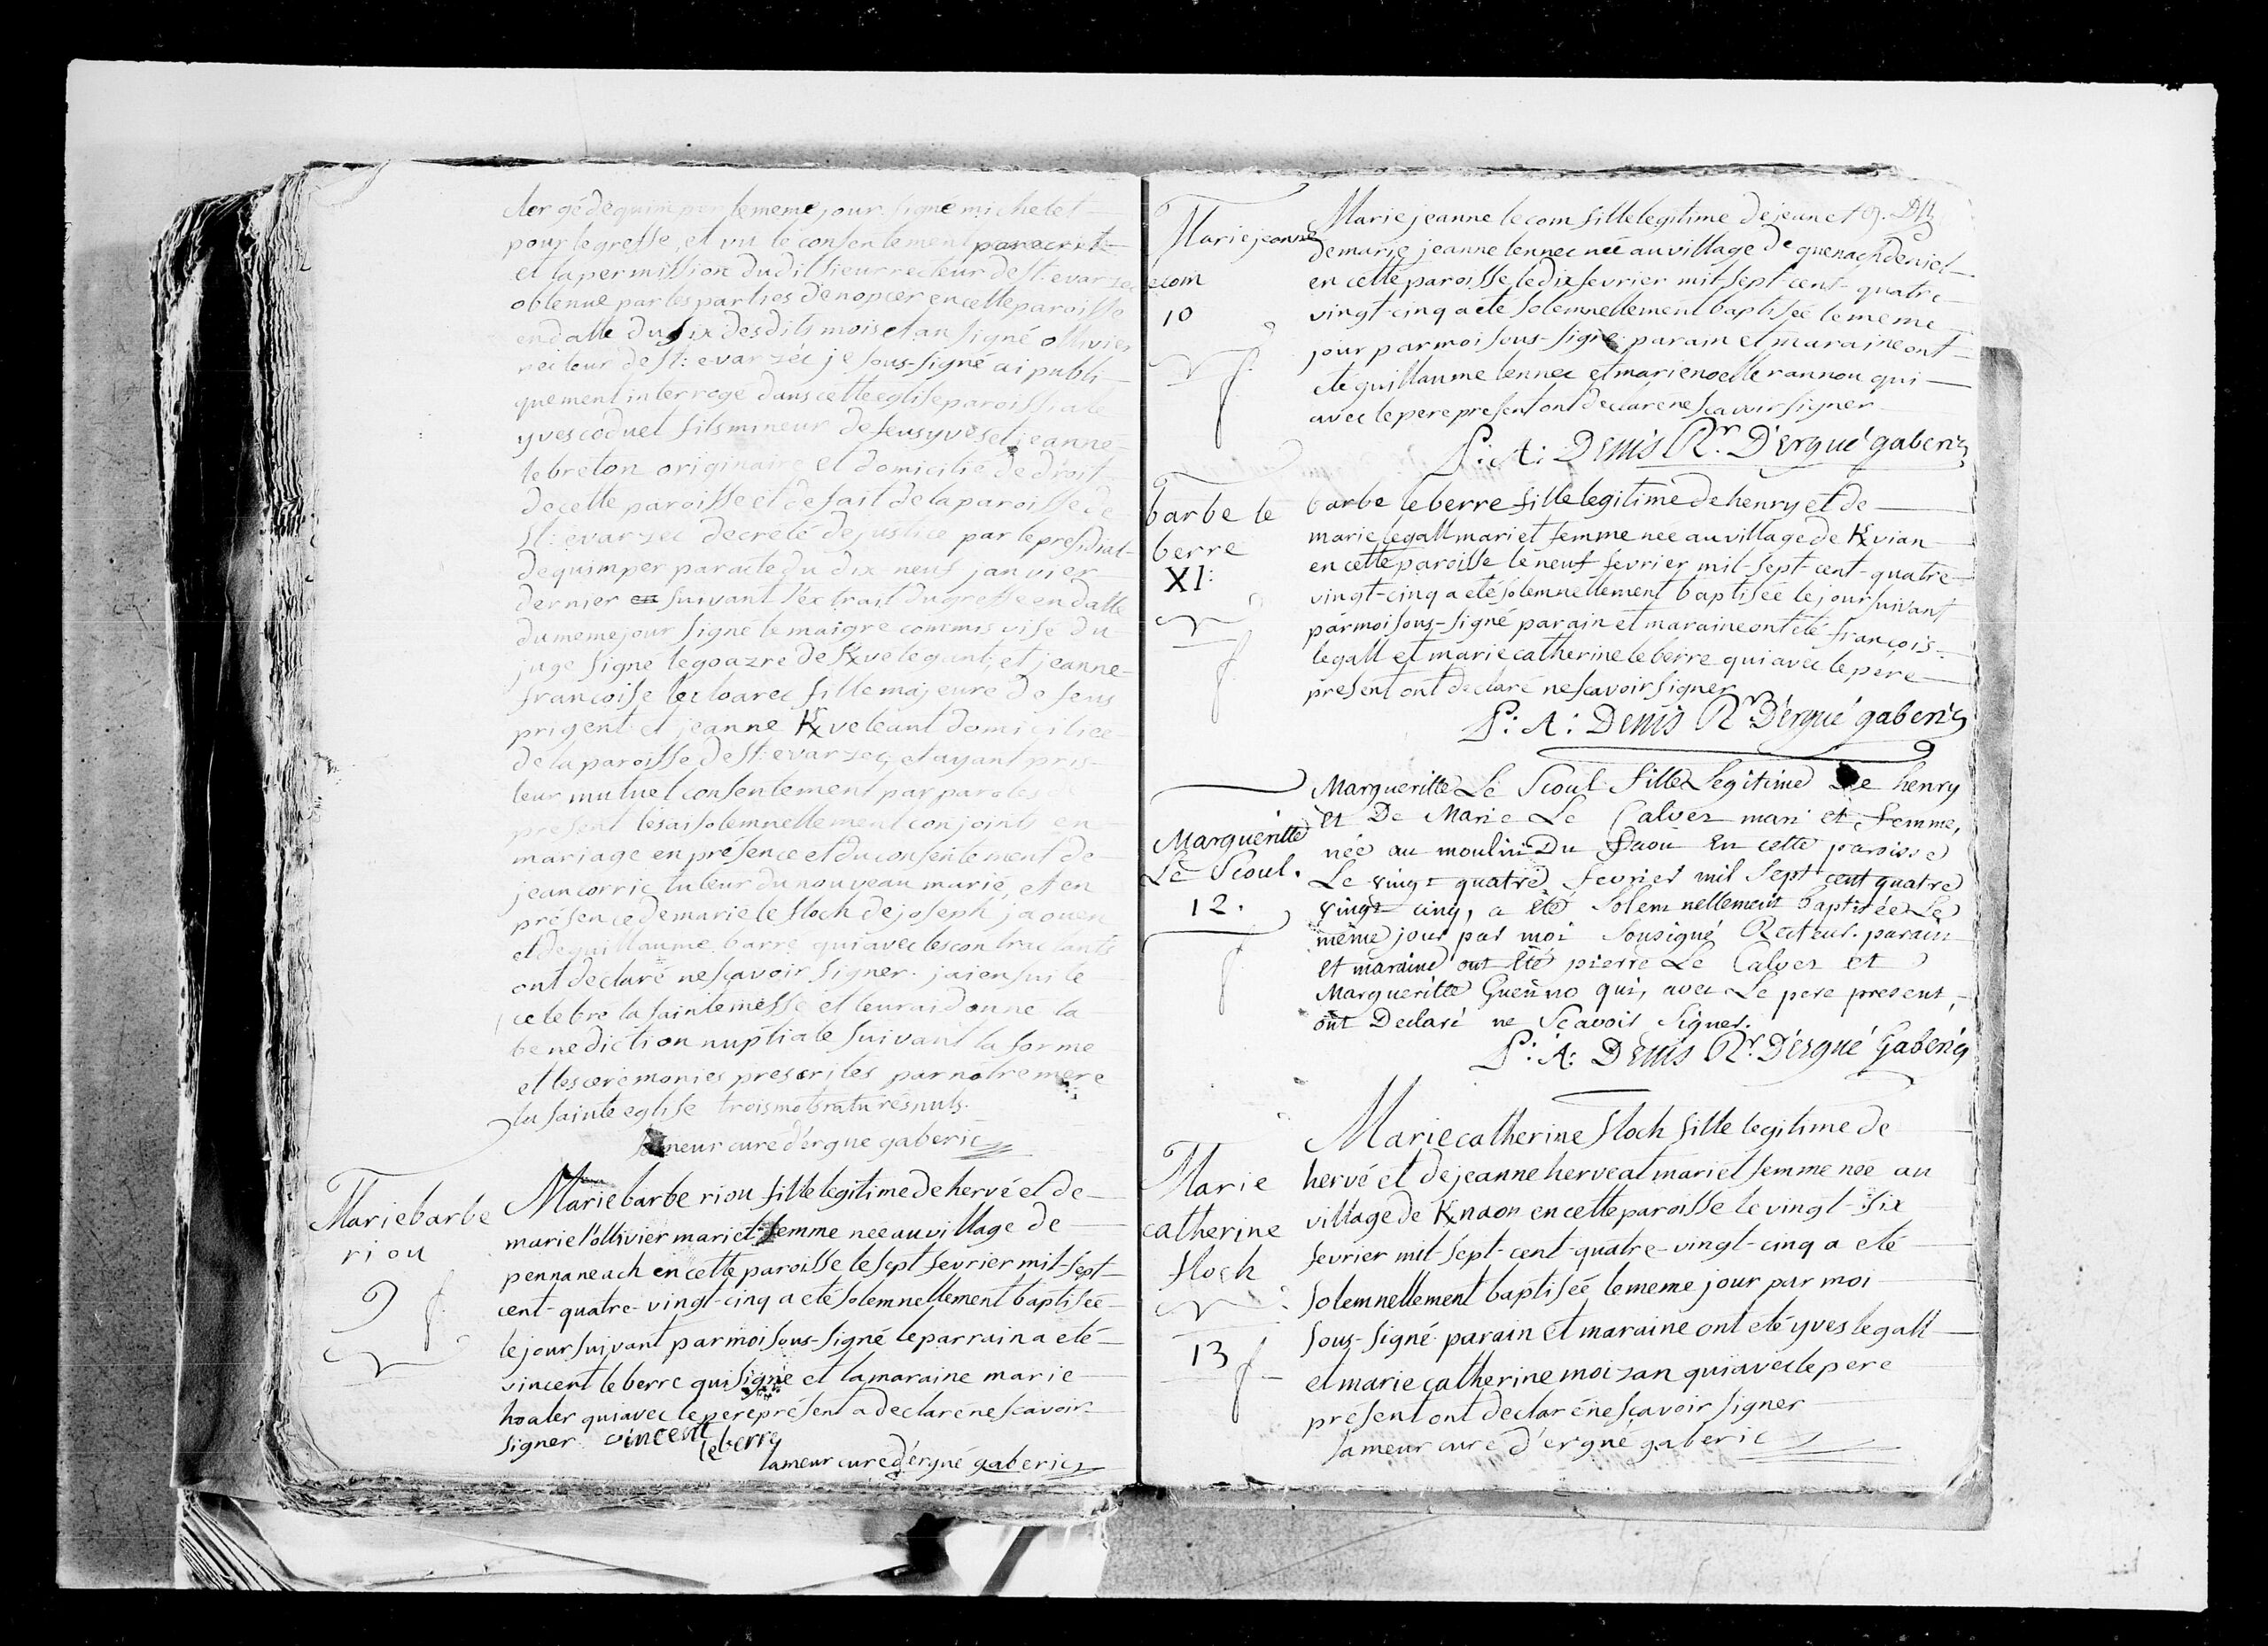 clergé de quimper le meme jour signé michelet
pour le greffe, et vu le consentement par ecrit
et la permission dudit sieur recteur de st: evarzec
obtenue par les parties d'enopcer en cette paroisse
en datte du six desdits mois et an signé ollivier
recteur de st: evarzéc je sous-signé ai publi-
quement interrogé dans cette eglise paroissiale
yves coduel fils mineur de feus yves et jeanne
le breton originaire et domicilié de droit
de cette paroisse et de fait de la paroisse de
st: evarzec decrété de justice par le presidial
de quimper par acte du dix neuf janvier
dernier suivant l'extrait du greffe en datte
du meme jour signé le maigre commis visé du
juge signé legoazre de K/velegant, et jeanne
francoise le cloarec fille majeure de feus
prigent et jeanne K/veleant domiciliée
de la paroisse de st: evarzec, et ayant pris
leur mutuel consentement par paroles de
present les ai solemnellement conjoints en
mariage en présence et du consentement de
jean corric tuteur du nouveau marié, et en
présence de marie le floch de joseph jaouen
et de guillaume barré qui avec les contractants
ont declaré ne sçavoir signer. j'ai ensuite
celebré la sainte messe et leur ai donné la
benediction nuptiale suivant la forme
et les ceremonies prescrites par notre mere
la sainte eglise trois mots raturés nuls.
lameur curé d'ergue gaberic
Marie barbe
riou
9
Marie barbe riou fille legitime de hervé et de
marie l'ollivier mari et femme née au village de
pennaneach en cette paroisse le sept fevrier mil-sept
cent-quatre-vingt-cinq a eté solemnellement baptisée
le jour suivant par moi sous-signé le parrain a eté
vincent le berre qui signe et la maraine marie
hoaler qui avec le pere présent a declaré ne scavoir
signer. vincent
le berre
lameur curé d'ergué gaberic
Marie jeanne
lecom
10
Marie jeanne le com fille legitime de jean et
de marie jeanne lennec née au village de quenachdeniel
en cette paroisse le dix fevrier mil-sept-cent-quatre
vingt-cinq a eté solemnellement baptisée le meme
jour par moi sous-signé parain et maraine ont
eté guillaume lennec et marie noelle rannou qui
avec le pere present ont declaré ne scavoir signer
P: A: Denis Rr. D'ergué gaberic
barbe le
berre
XI:
barbe le berre fille legitime de henry et de
marie legall mari et femme née au village de K/vian
en cette paroisse le neuf fevrier mil-sept-cent-quatre
vingt-cinq a eté solemnellement baptisée le jour suivant
par moi sous-signé parain et maraine ont eté françois
legall et marie catherine le berre qui avec le pére
present ont declaré ne scavoir signer
P: A: Denis Rr D'ergué gaberic
Margueritte
Le Scoul.
12.
Margueritte Le Scoul fille Legitime De henry
et De Marie Le Calvez mari et femme,
née au moulin Du faou En cette paroisse
Le vingt quatre fevrier mil sept cent quatre
vingt cinq, a été Solemnellement baptisée Le
même jour par moi Sousigné Recteur. parain
et maraine ont été pierre Le Calvez et
Margueritte Guenno qui, avec Le pere present,
ont Declaré ne Scavoir Signer.
P: A: Denis Rr. D'ergué Gaberic
Marie
catherine
floch
13
Marie catherine floch fille legitime de
hervé et de jeanne herveat mari et femme née au
village de K/naon en cette paroisse le vingt-six
fevrier mil-sept-cent-quatre-vingt-cinq a eté
solemnellement baptisée le meme jour par moi
sous-signé parain et maraine ont eté yves legall
et marie catherine moizan qui avec le pere
présent ont declaré ne sçavoir signer
lameur curé d'ergué gaberic